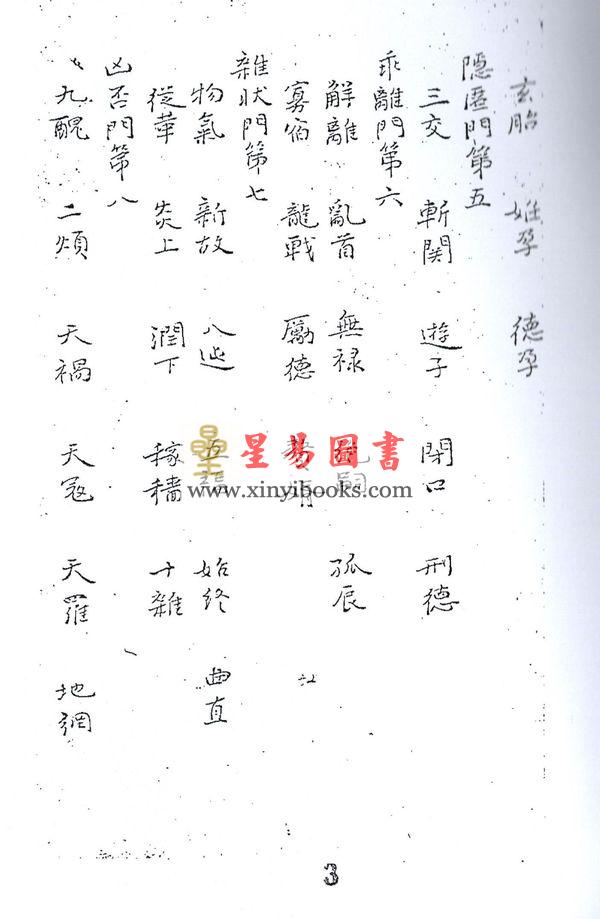 玄胎 姙孕 德孕
隱匿門第五
三交 斬関 遊子 閉口 刑德
乖離門第六
解離 亂首 無禄 絶嗣 孤辰
寡宿 龍戰 勵德
雜状門第七
物氣 新故 八迍 五福 始终 曲直
從革 炎上 潤下 稼穡 十雜
凶否門第八
九醜 二煩 天禍 天冦 天羅 地網
星易圖書
www.xinyibooks.com
3